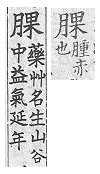 腂
腫赤
也
腂
藥艸名生山谷
中益氣延年